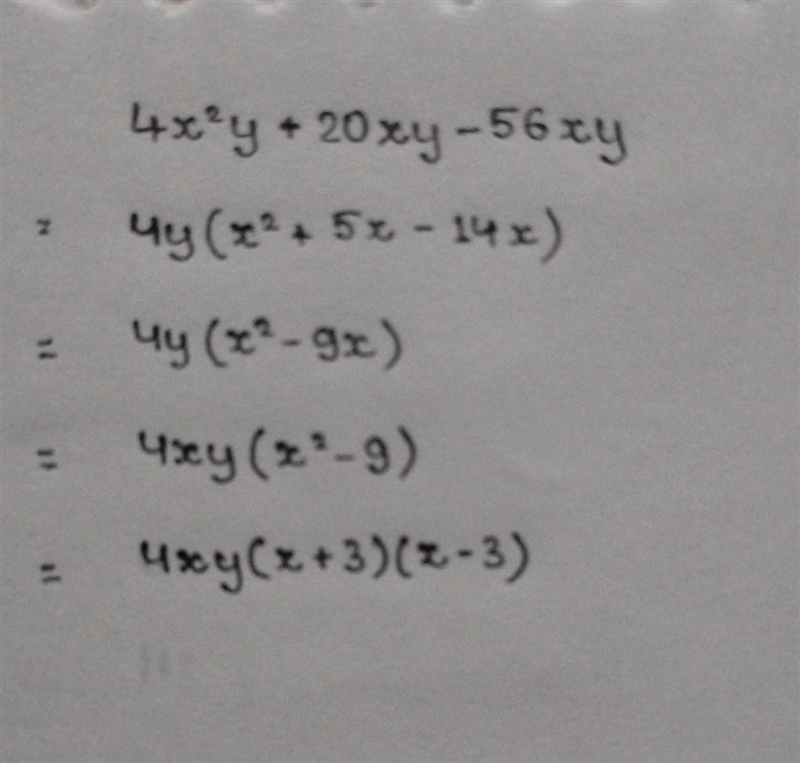 4x²y + 20xy - 56xy
= 4y(x² + 5x - 14x)
= 4y(x² - 9x)
= 4xy(x² - 9)
= 4xy(x+3)(x-3)